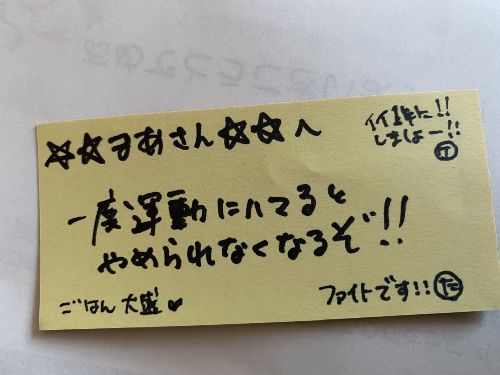 ☆☆ヨあさん☆☆へ
イイ1年に!!
しましょー!!
一度運動にハマると
やめられなくなるぞ!!
ごはん大盛♥
ファイトです!! た